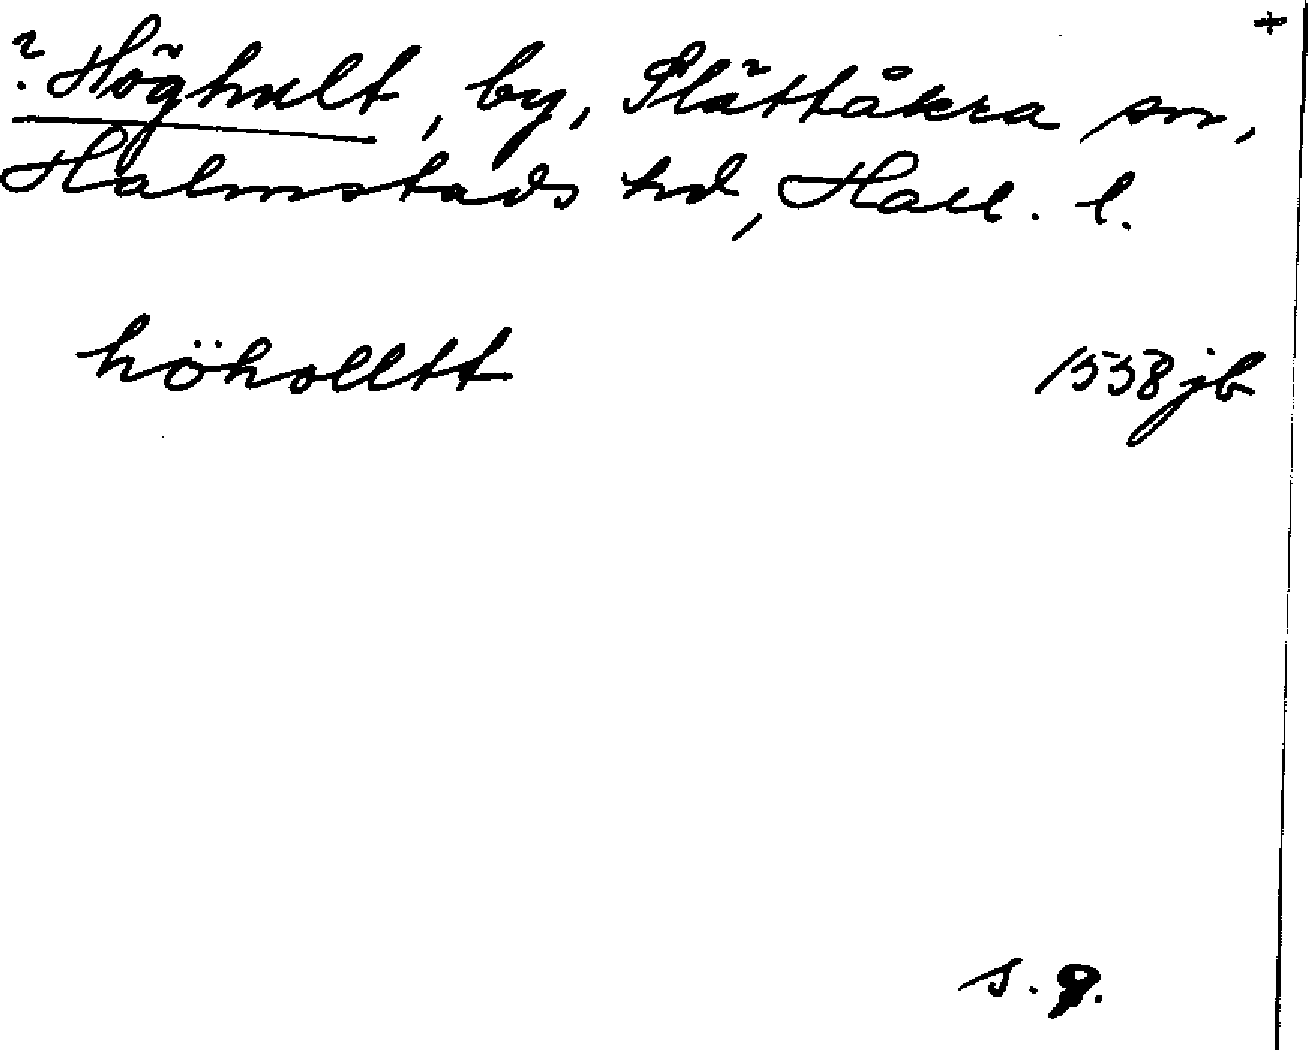 +
? Höghult, by, Slättåkra sn,
Halmstads hd, Hall. l.
höholltt 1558 jb
s. 9.